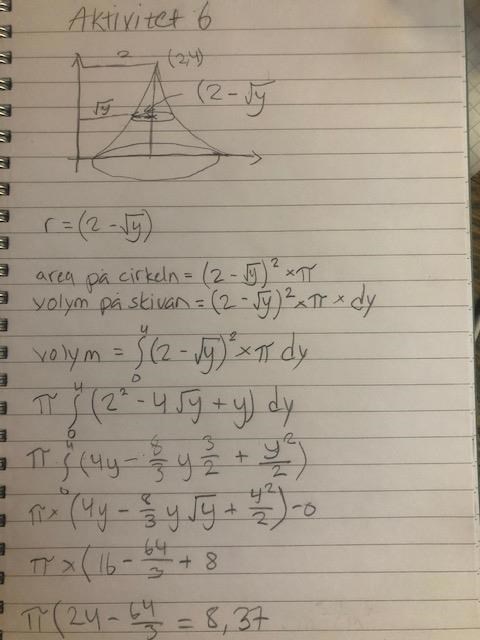 Aktivitet 6
2
(2,4)
√y
(2 - √y
r = (2 - √y)
area på cirkeln = (2 - √y)² × π
volym på skivan = (2 - √y)² × π × dy
volym = ∫₀⁴ (2 - √y)² × π dy
π ∫₀⁴ (2² - 4√y + y) dy
π ∫₀⁴ (4y - 8/3 y 3/2 + y²/2)
π × (4y - 8/3 y√y + y²/2) - 0
π × (16 - 64/3 + 8
π (24 - 64/3 = 8,37